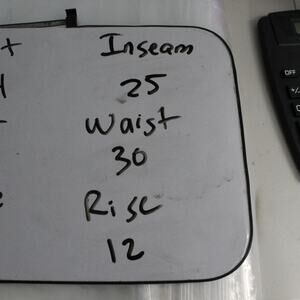 Inseam
25
Waist
30
Rise
12
OFF